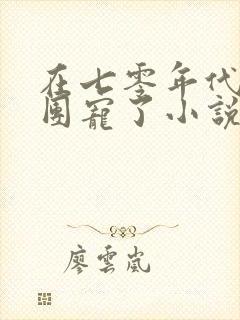 在七零年代
团宠了小說
廖雲嵐